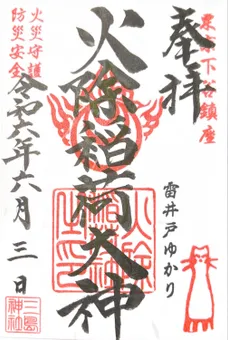 東京下谷鎮座
奉拝
雷井戸ゆかり
火除稲荷大神
火除稲荷神社之印
火災守護
防災安全
令和六年六月三日
三島神社